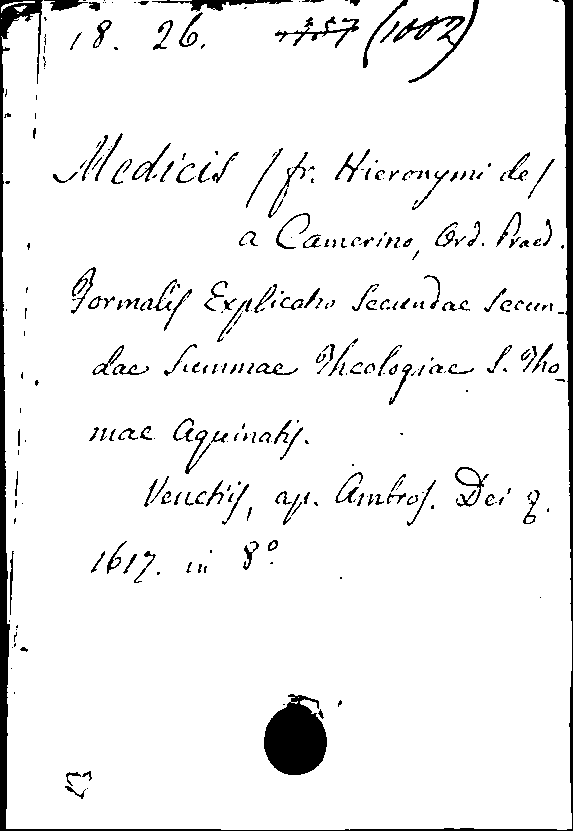 18. 26. (1002)
Medicis / fr. Hieronymi de /
a Camerino, Ord. Praed.
Formalis Explicatio Secundae Secun-
dae Summae Theologiae S. Tho-
mae Aquinatis.
Venetiis, ap. Ambros. Dei q.
1617. in 8º